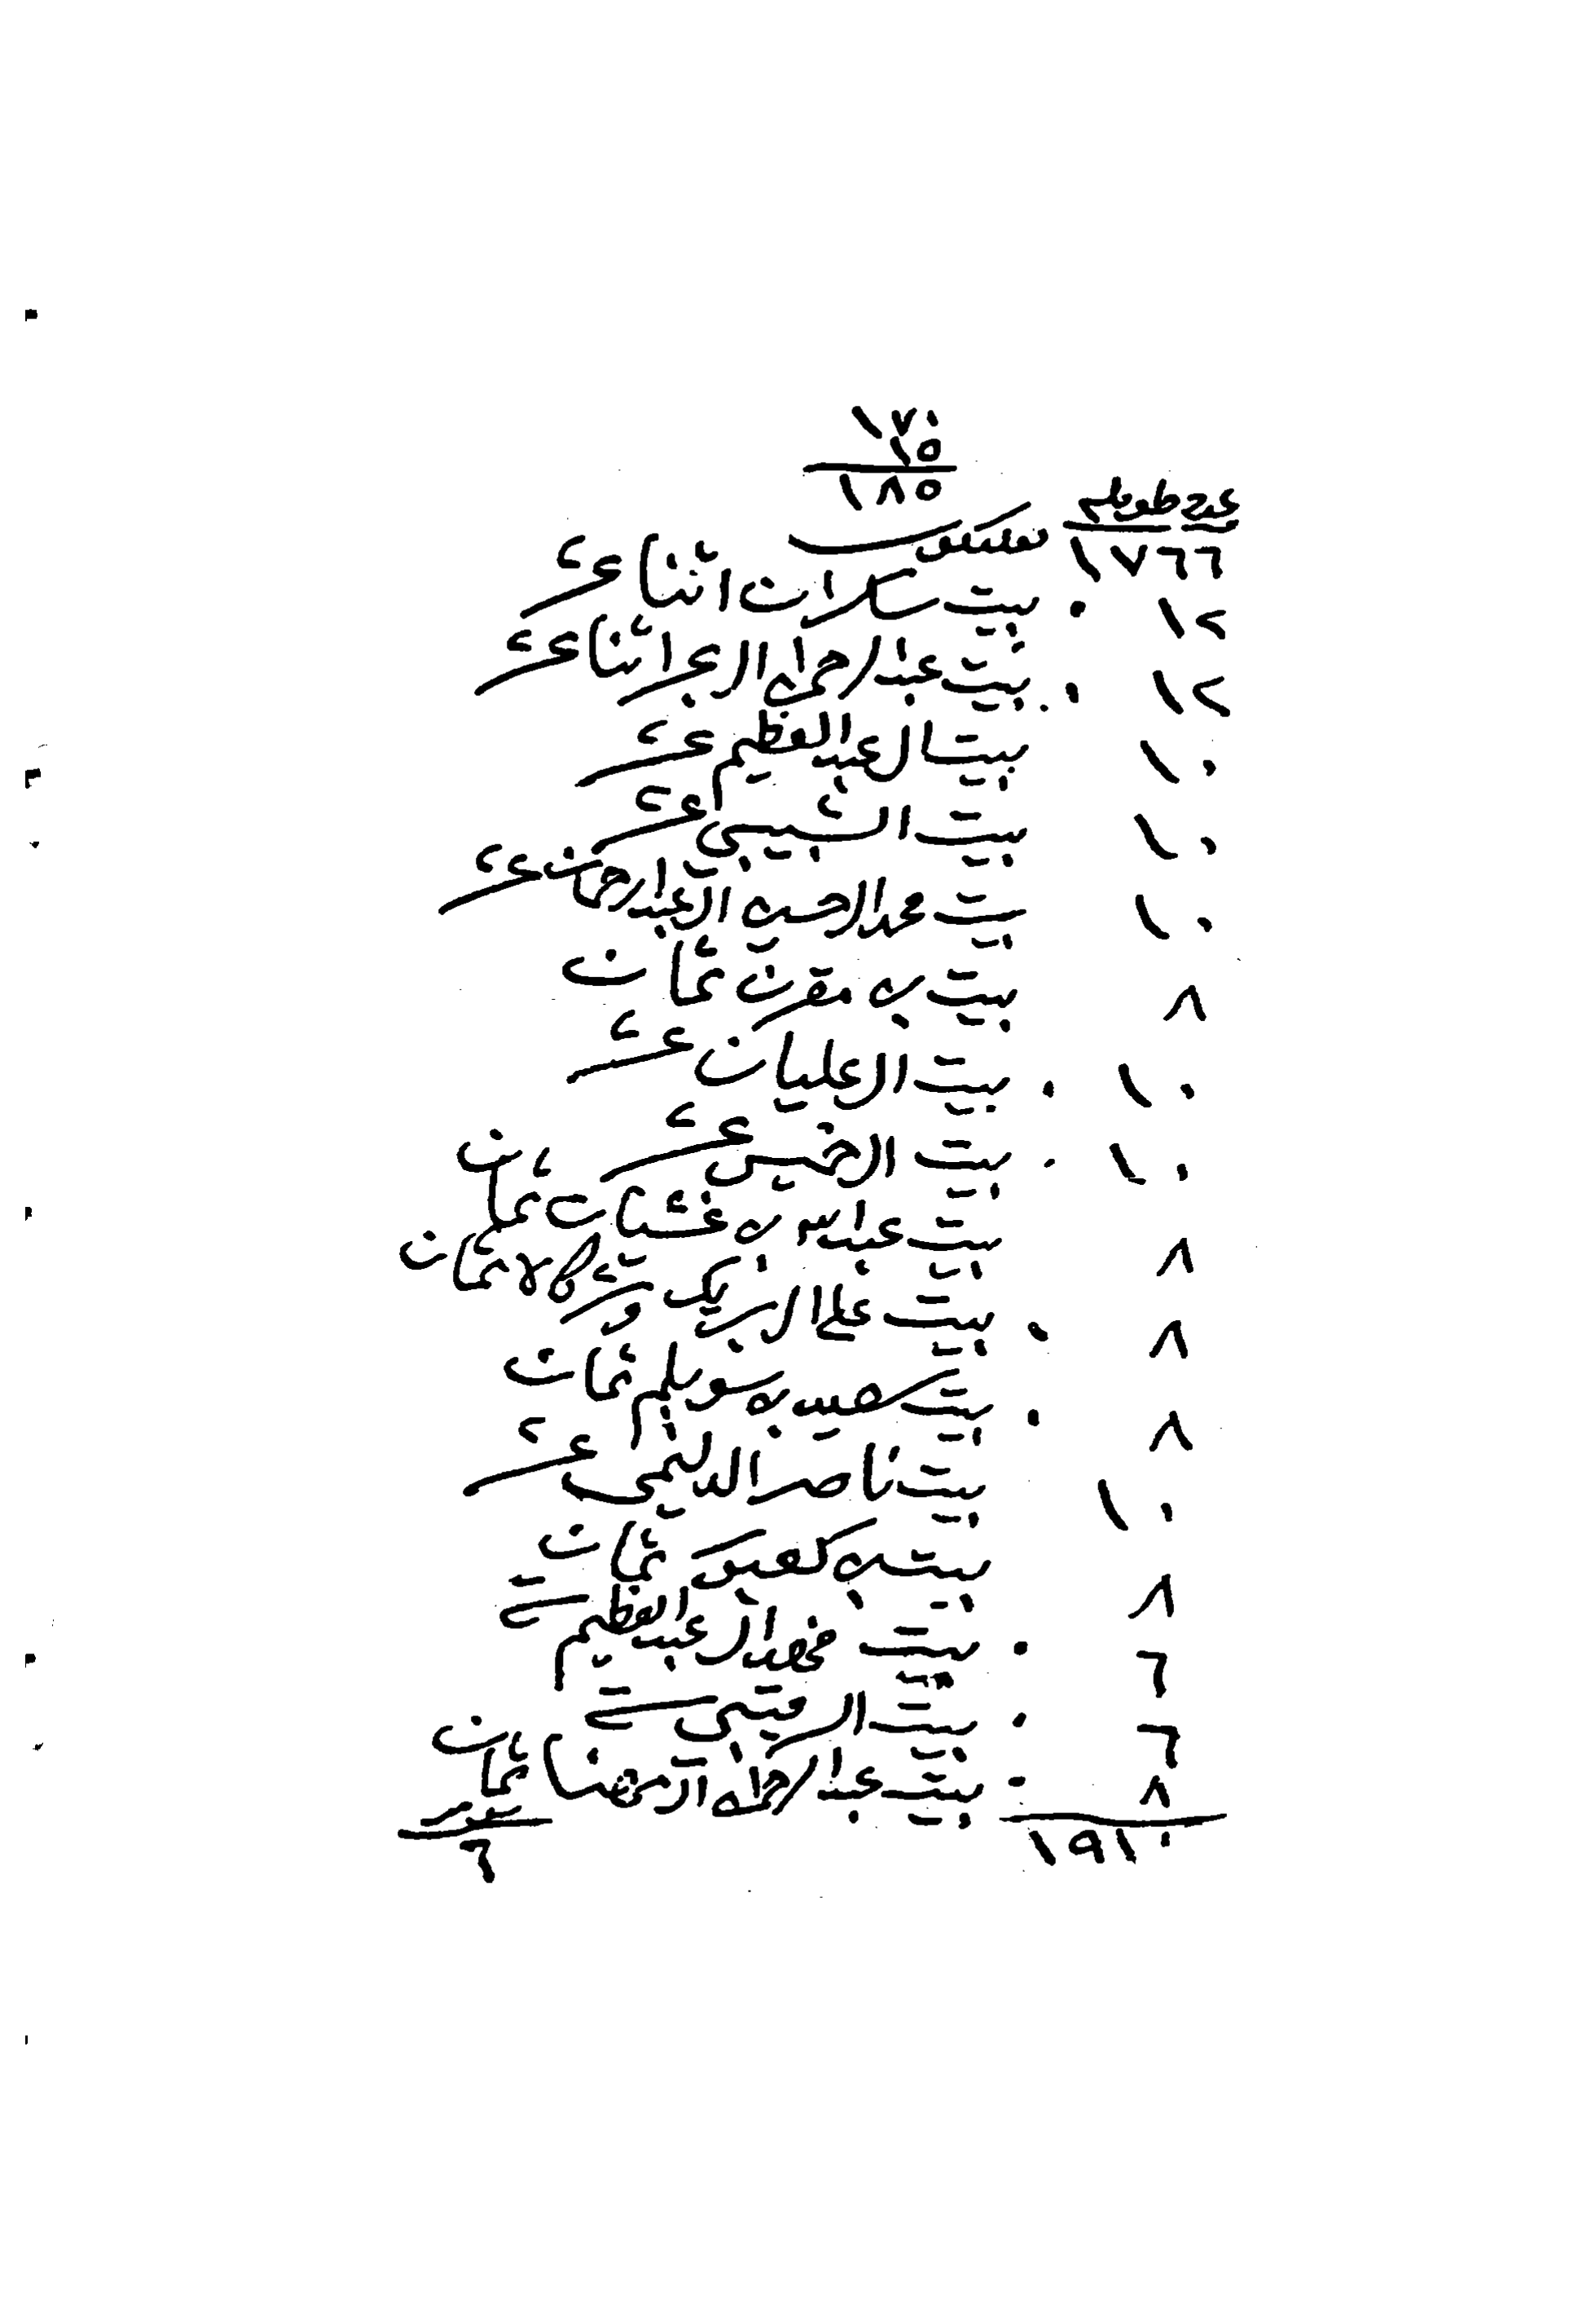 ١٧٠
١٥
١٨٥
عدد طويله
١٧٦٦
١٢ ٠ بيت سكران اثنا عشر
١٢ ٠ بيت عبدالرحمن اثنا عشر
١٠ بيت ال عبدالعظيم عشر
١٠ بيت الشبيبي عشر
١٠ بيت محمد ال حسين ال عبدالرحمن عشر
٨ بيت بن مقرن ثمان
١٠ ٠ بيت ال عليان عشر
١٠ ٠ بيت ال خميس عشر
٨ بيت عبدالله بن غشيان ثمان
٨ ٠ بيت علي ال بريك ثمان
٨ ٠ بيت بن سويلم ثمان
١٠ بيت ناصر الدليمي عشر
٨ بيت بن ثمان
٦ ٠ بيت ال عبدالعظيم ستة
٦ ٠ بيت ستة
٨ ٠ بيت عبدالرحمن ثمان
١٩١٠
٦